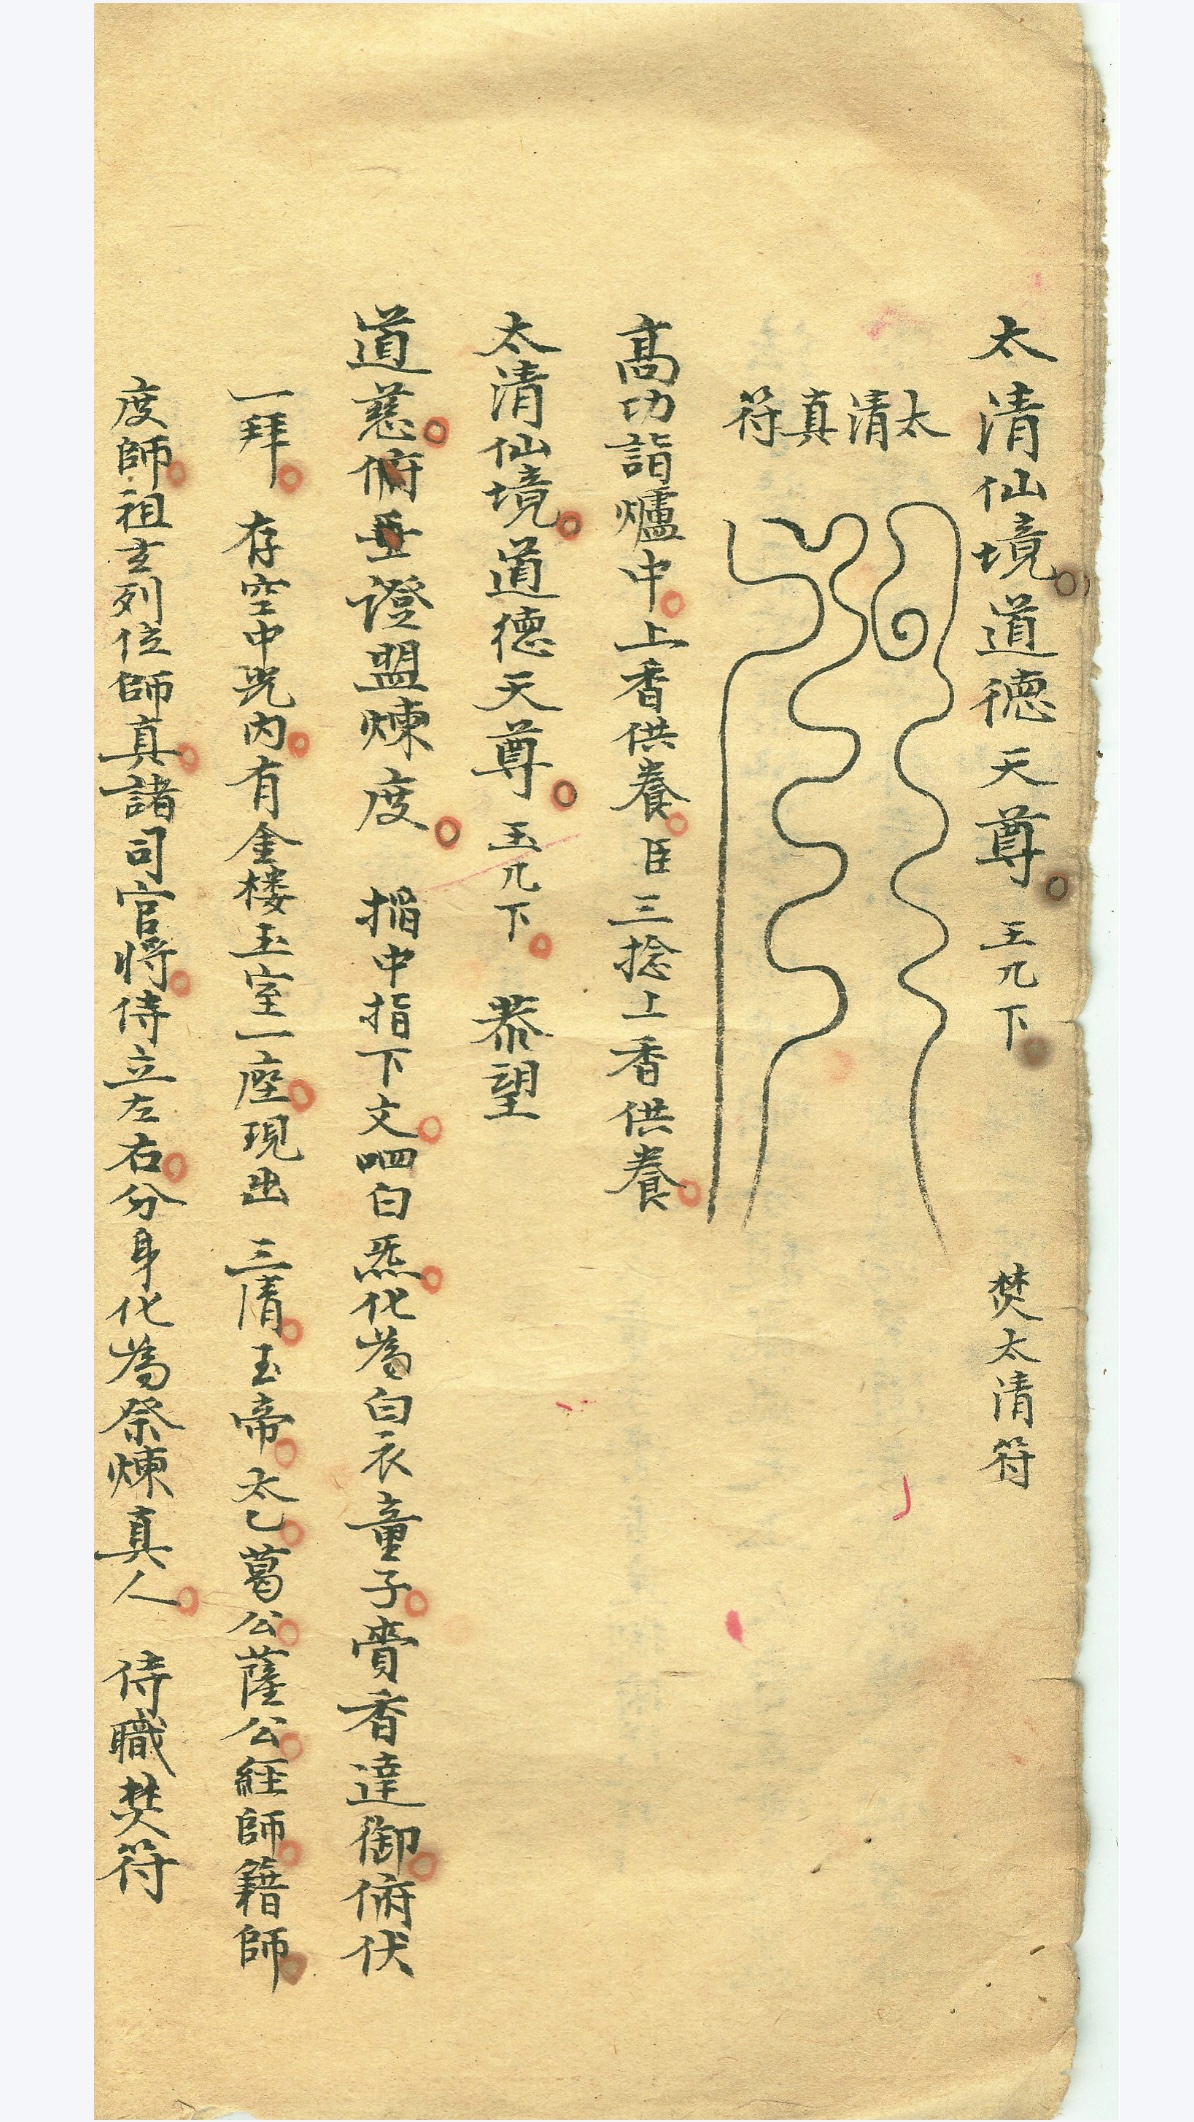 太清仙境道德天尊 玉几下 焚太清符
太清真符
高功詣爐中上香供養臣三捻上香供養
太清仙境道德天尊 玉几下 恭望
道慈俯垂證盟煉度 掐中指下文呬白炁化為白衣童子賫香達御俯伏
一拜 存空中咒内有金楼玉室一座現出 三清玉帝太乙葛公薩公經師籍師
度師祖玄列位師真諸司官將侍立左右分身化為祭煉真人 侍職焚符